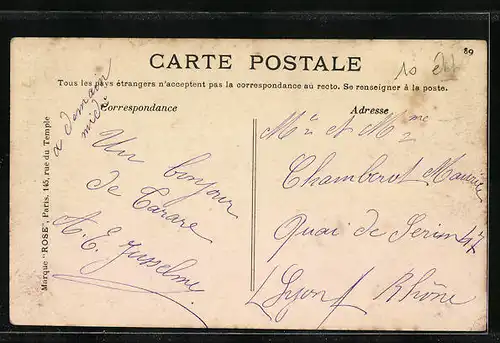 89
CARTE POSTALE
10
Tous les pays étrangers n'acceptent pas la correspondance au recto. Se renseigner à la poste.
Correspondance
Adresse
à demain
midi
Un bonjour
de Tarare
A. E. Jusselme
Mr et Mme
Chamberot Maurice
Quai de Serin 47
Lyon Rhône
Marque "ROSE", Paris, 145, rue du Temple